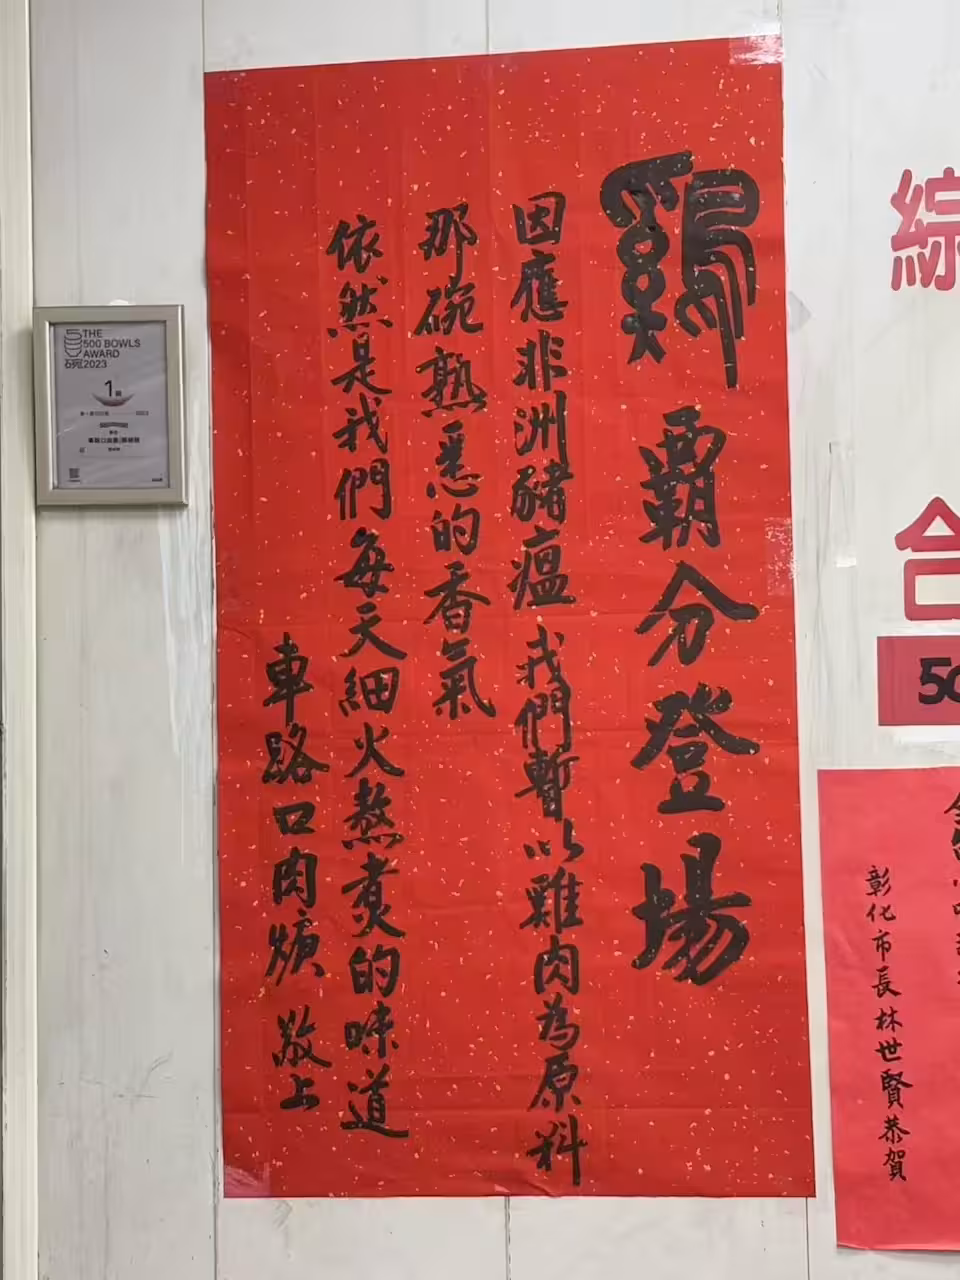 鷄霸分登場
因應非洲豬瘟 我們暫以雞肉為原料
那碗熟悉的香氣
依然是我們每天細火熬煮的味道
車路口肉爌 敬上
THE
500 BOWLS
AWARD
2023
1
綜
合
50
彰化市長林世賢恭賀